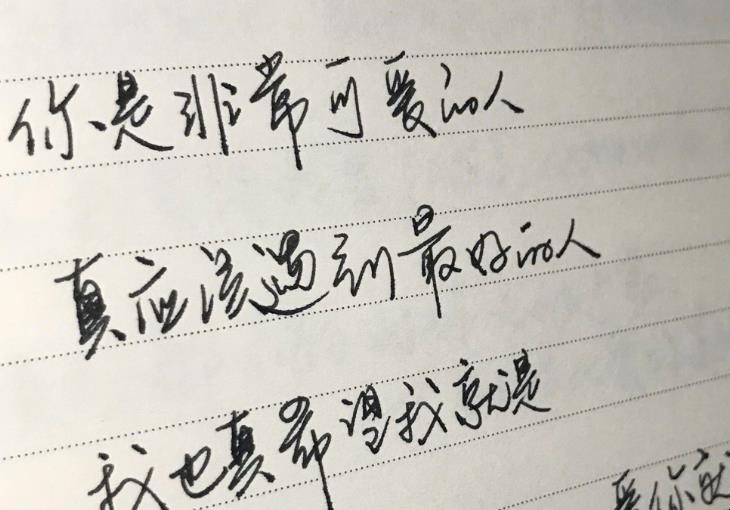 你是非常可爱的人
真应该遇到最好的人
我也真希望我就是
爱你就